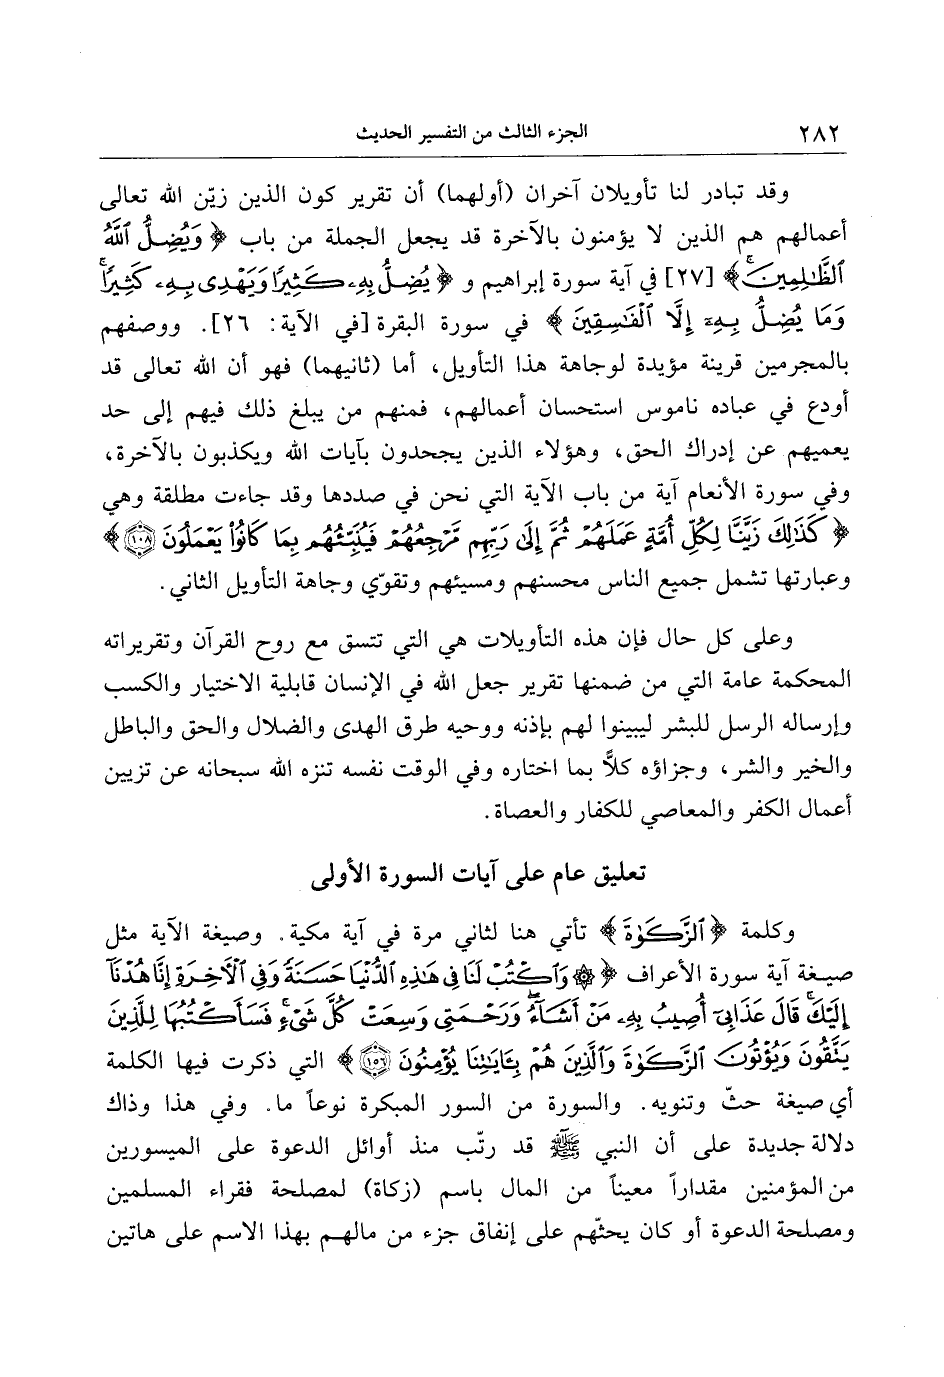 ٢٨٢ الجزء الثالث من التفسير الحديث
وقد تبادر لنا تأويلان آخران (أولهما) أن تقرير كون الذين زيّن الله تعالى
أعمالهم هم الذين لا يؤمنون بالآخرة قد يجعل الجملة من باب ﴿ وَيُضِلُّ ٱللَّهُ
ٱلظَّٰلِمِينَۚ﴾ [٢٧] في آية سورة إبراهيم و ﴿ يُضِلُّ بِهِۦ كَثِيرًا وَيَهْدِى بِهِۦ كَثِيرًاۚ
وَمَا يُضِلُّ بِهِۦٓ إِلَّا ٱلْفَٰسِقِينَ ﴾ في سورة البقرة [في الآية: ٢٦]. ووصفهم
بالمجرمين قرينة مؤيدة لوجاهة هذا التأويل، أما (ثانيهما) فهو أن الله تعالى قد
أودع في عباده ناموس استحسان أعمالهم، فمنهم من يبلغ ذلك فيهم إلى حد
يعميهم عن إدراك الحق، وهؤلاء الذين يجحدون بآيات الله ويكذبون بالآخرة،
وفي سورة الأنعام آية من باب الآية التي نحن في صددها وقد جاءت مطلقة وهي
﴿ كَذَٰلِكَ زَيَّنَّا لِكُلِّ أُمَّةٍ عَمَلَهُمْ ثُمَّ إِلَىٰ رَبِّهِم مَّرْجِعُهُمْ فَيُنَبِّئُهُم بِمَا كَانُوا۟ يَعْمَلُونَ ١٠٨ ﴾
وعبارتها تشمل جميع الناس محسنهم ومسيئهم وتقوّي وجاهة التأويل الثاني.
وعلى كل حال فإن هذه التأويلات هي التي تتسق مع روح القرآن وتقريراته
المحكمة عامة التي من ضمنها تقرير جعل الله في الإنسان قابلية الاختيار والكسب
وإرساله الرسل للبشر ليبينوا لهم بإذنه ووحيه طرق الهدى والضلال والحق والباطل
والخير والشر، وجزاؤه كلاًّ بما اختاره وفي الوقت نفسه تنزه الله سبحانه عن تزيين
أعمال الكفر والمعاصي للكفار والعصاة.
تعليق عام على آيات السورة الأولى
وكلمة ﴿ ٱلزَّكَوٰةَ ﴾ تأتي هنا لثاني مرة في آية مكية. وصيغة الآية مثل
صيغة آية سورة الأعراف ﴿ ۞ وَٱكْتُبْ لَنَا فِى هَٰذِهِ ٱلدُّنْيَا حَسَنَةً وَفِى ٱلْءَاخِرَةِ إِنَّا هُدْنَآ
إِلَيْكَۚ قَالَ عَذَابِىٓ أُصِيبُ بِهِۦ مَنْ أَشَآءُۖ وَرَحْمَتِى وَسِعَتْ كُلَّ شَىْءٍۚ فَسَأَكْتُبُهَا لِلَّذِينَ
يَتَّقُونَ وَيُؤْتُونَ ٱلزَّكَوٰةَ وَٱلَّذِينَ هُم بِـَٔايَٰتِنَا يُؤْمِنُونَ ١٥٦ ﴾ التي ذكرت فيها الكلمة
أي صيغة حثّ وتنويه. والسورة من السور المبكرة نوعاً ما. وفي هذا وذاك
دلالة جديدة على أن النبي ﷺ قد رتّب منذ أوائل الدعوة على الميسورين
من المؤمنين مقداراً معيناً من المال باسم (زكاة) لمصلحة فقراء المسلمين
ومصلحة الدعوة أو كان يحثّهم على إنفاق جزء من مالهم بهذا الاسم على هاتين